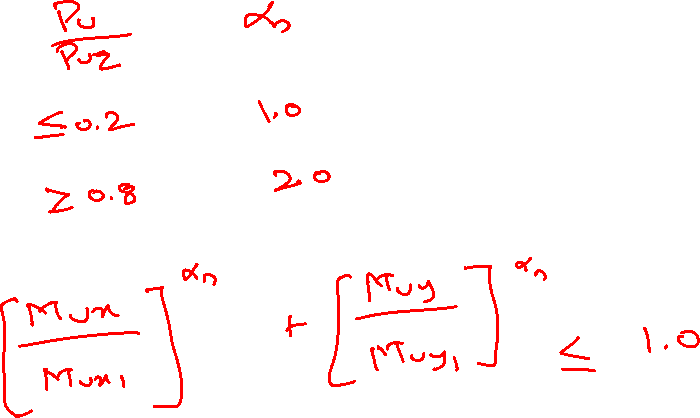 Pu/Puz αn
≤0.2 1.0
≥0.8 2.0
[Mux/Mux1]^αn + [Muy/Muy1]^αn ≤ 1.0